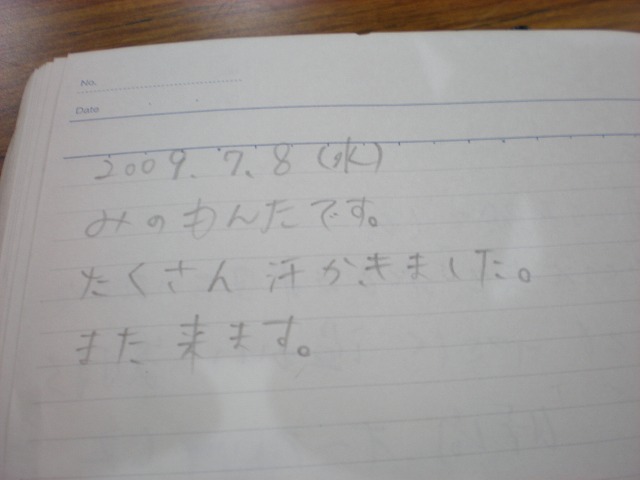 No.
Date
2009.7.8(水)
みのもんたです。
たくさん汗かきました。
また来ます。